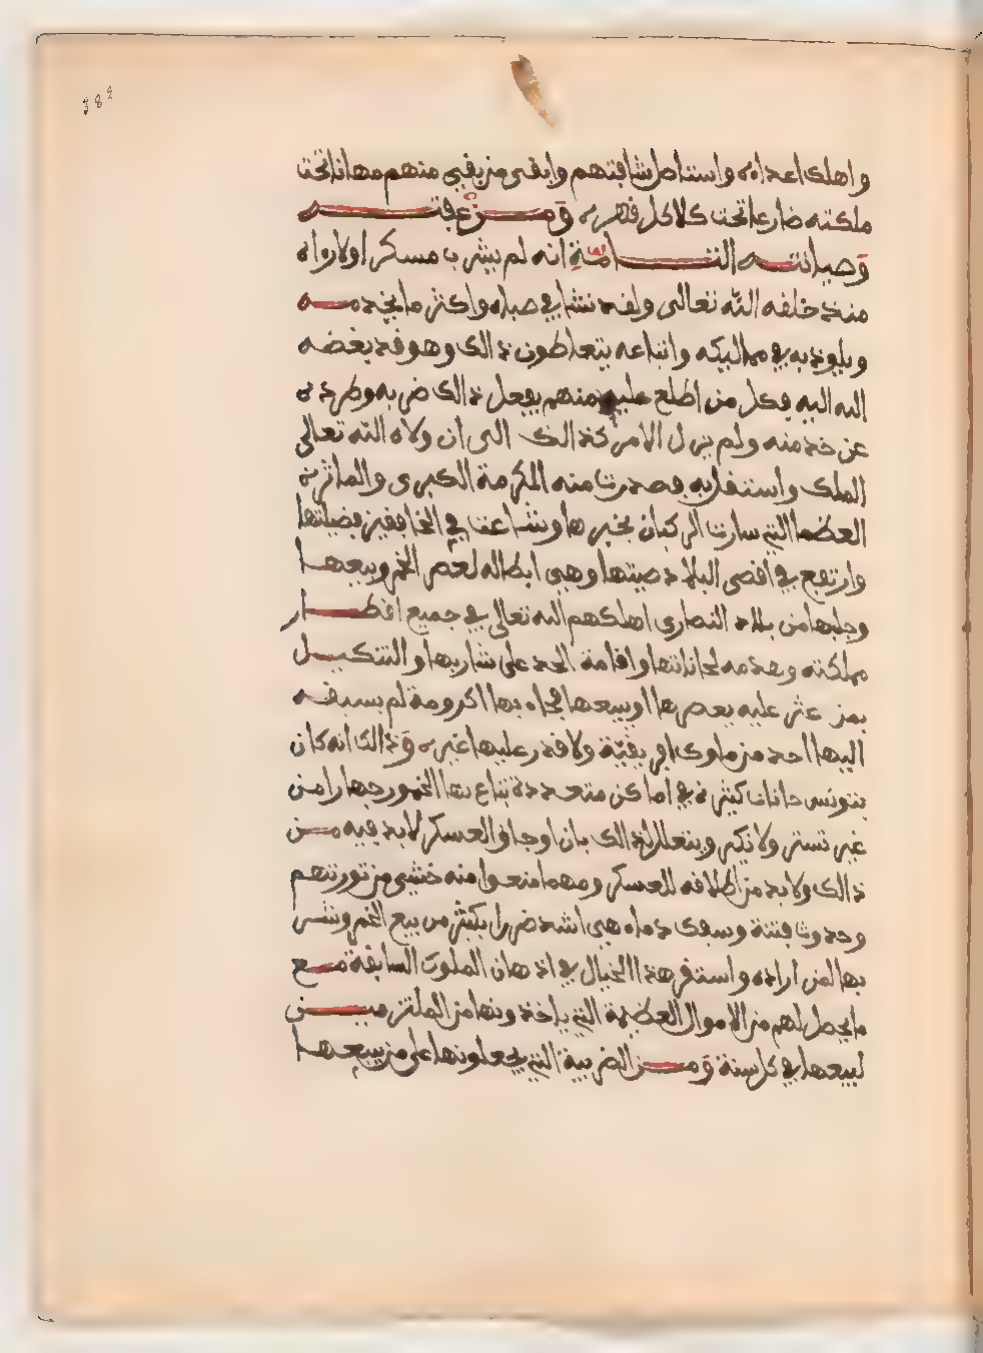 389
واهلك اعداءه واستاصل شافتهم وابقى من بقي منهم مهانا تحت
ملكته ضارعا تحت كلاكل قهره ومن عفته
وصيانته التامة انه لم يشرب مسكرا ولا رواه
منذ خلقه الله تعالى ولقد نشا في صباه واكثر ما يخدمه
ويلوذ به في مماليكه واتباعه يتعاطون ذالك وهو قد بغضه
الله اليه فكل من اطلع عليه منهم يفعل ذالك ضربه وطرده
عن خدمته ولم يزل الامر كذالك الى ان ولاه الله تعالى
الملك واستقل به فصدرت منه المكرمة الكبرى والماثرة
العظما التي سارت الركبان بخبرها وشاعت في الخافقين فضيلتها
وارتفع في اقصى البلاد صيتها وهي ابطاله لعصر الخمر وبيعها
وجلبها من بلاد النصارى اهلكهم الله تعالى في جميع اقطار
مملكته وهدمه لحاناتها واقامة الحد على شاربها والتنكيل
بمن عثر عليه يعصرها او يبيعها فجاء بها اكرومة لم يسبقه
اليها احد من ملوك افريقية ولا قدر عليها غيره وذالك انه كان
بتونس حانات كثيرة في اماكن متعددة تباع بها الخمور جهارا من
غير تستر ولا نكير ويتعلل لذالك بان اوجاق العسكر لا بد فيه من
ذالك ولا بد من اطلاقه للعسكر ومهما منعوا منه خشي من ثورتهم
وحدوث فتنة وسفك دماء هي اشد ضررا بكثير من بيع الخمر وشر
بها لمن اراده واستقر هذا الخيال في اذهان الملوك السابقة مع
ما يحصل لهم من الاموال العظيمة التي ياخذونها من الملتزمين
لبيعها في كل سنة ومن الضريبة التي يجعلونها على من يبيعها